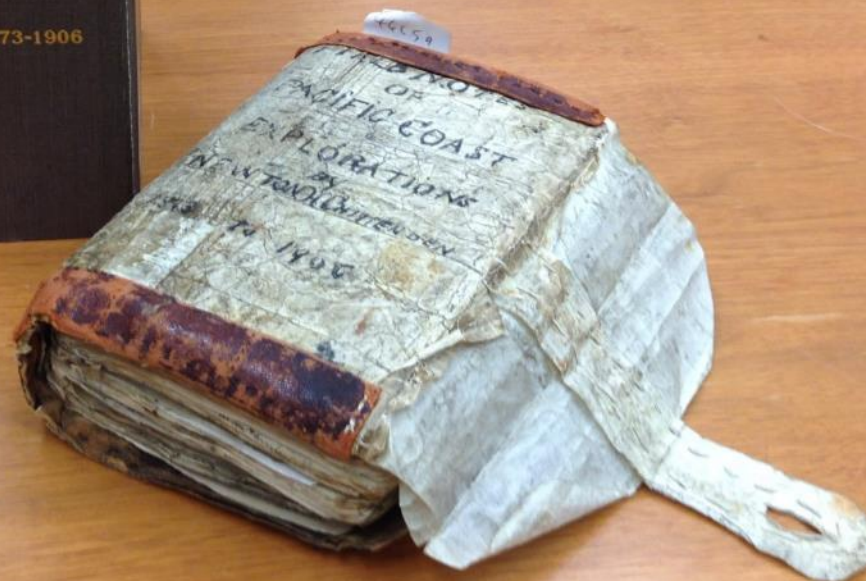 73-1906
OF
PACIFIC COAST
EXPLORATIONS
BY
NEWTON H. CHITTENDEN
TO 1906